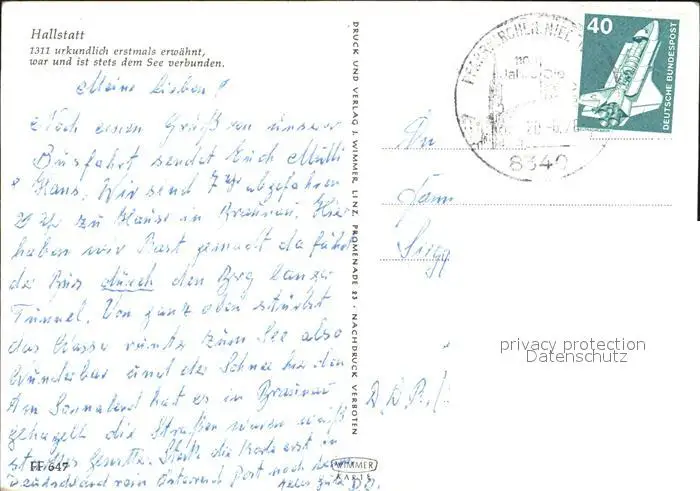 Hallstatt
1311 urkundlich erstmals erwähnt,
war und ist stets dem See verbunden.
Meine Lieben!
Noch einen Gruß von unserer
Busfahrt sendet Euch Mutti
& Hans. Wir sind 7 Uhr abgefahren
20 Uhr zu Hause in Braunau. Hier
haben wir Rast gemacht da fährt
der Bus durch den Berg langer
Tunnel. Von ganz oben stürzt
das Wasser runter zum See also
Wunderbar und der Schnee
Am Sonnabend hat es in Braunau
gehagelt die Straßen waren weiß
die Karte erst in
Deutschland rein Österreich Post noch
alles gute
FF 647
DRUCK UND VERLAG J. WIMMER, LINZ, PROMENADE 23 - NACHDRUCK VERBOTEN
WIMMER
KARTE
8342
40
DEUTSCHE BUNDESPOST
An
Fam
D.D.R.
privacy protection
Datenschutz